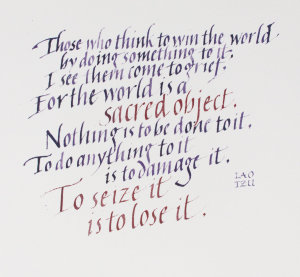 Those who think to win the world
by doing something to it,
I see them come to grief.
For the world is a
sacred object.
Nothing is to be done to it.
To do anything to it
is to damage it.
To seize it
is to lose it.
LAO
TZU